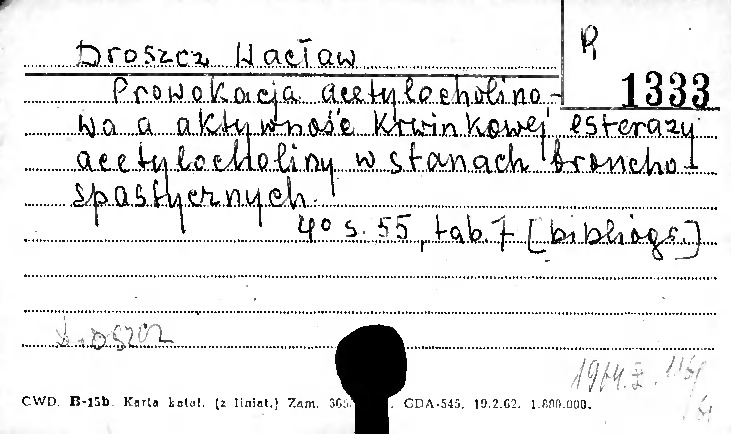 Droszcz Wacław
R
1333
Prowokacja acetylocholino-
wa a aktywność krwinkowej esterazy
acetylocholiny w stanach broncho-
spastycznych.
4° s. 55, tab. 7 [bibliogr.]
CWD. B-15b. Karta katal. (z liniat.) Zam. GDA-545. 19.2.62. 1.800.000.